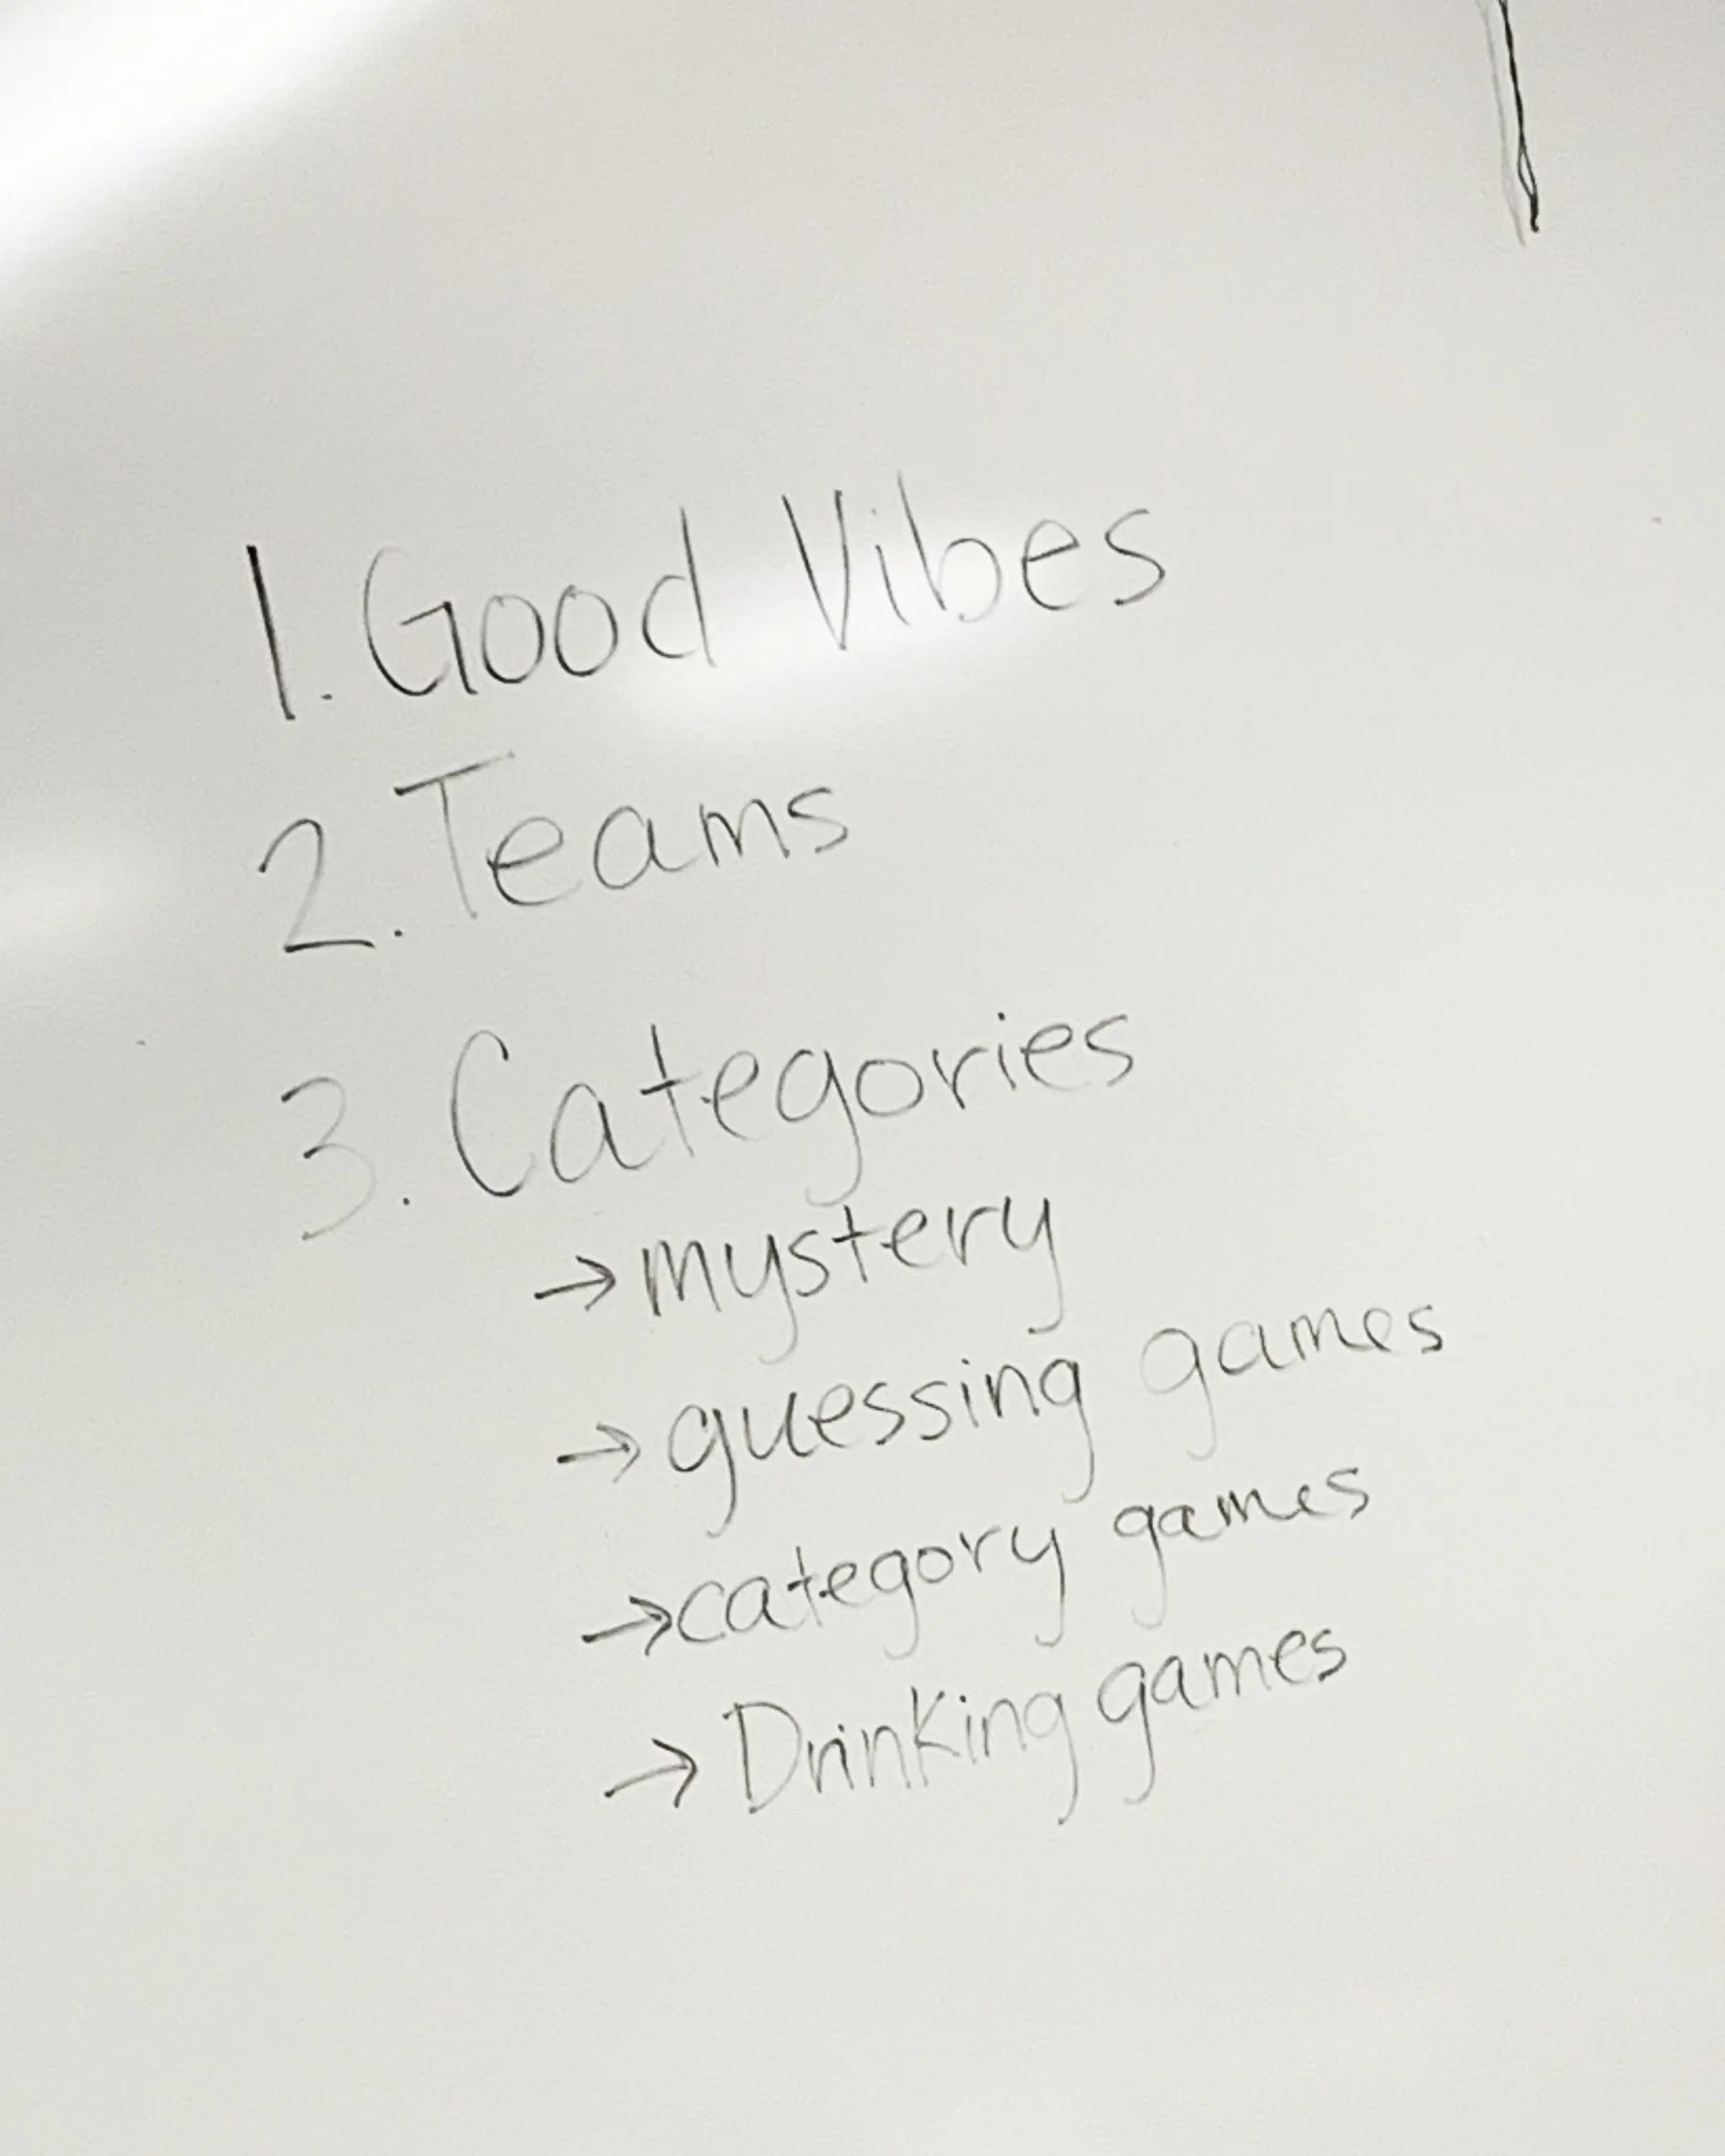 1. Good Vibes
2. Teams
3. Categories
→ mystery
→ guessing games
→ category games
→ Drinking games